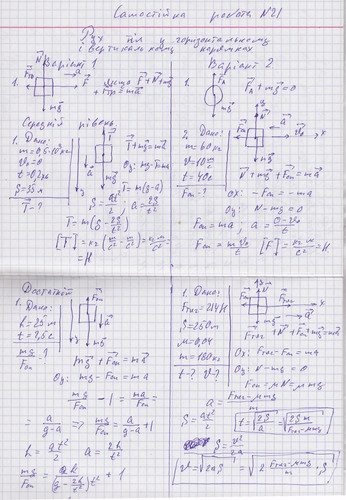 Самостійна робота №21
Рух тіл у горизонтальному
і вертикальному напрямках
Варіант 1
1.
якщо F⃗+N⃗+mg⃗
+F⃗тр=ma⃗
Варіант 2
1.
F⃗A+mg⃗=0
Середній рівень.
1. Дано:
t=0,2
S=35м
T-?
T⃗+mg⃗=ma⃗
Oy: mg-T=ma
T=m(g-a)
S=at²/2; a=2S/t²
T=m(g-2S/t²)
[T]=кг(м/с²-м/с²)=кг·м/с²=
=Н
2. Дано:
m=60кг
t=40с
Fоп-?
N⃗+mg⃗+F⃗оп=ma⃗
Ox: -Fоп=-ma
Oy: N-mg=0
Fоп=ma; a=
Fоп=mv₀/t [F]=кг·м/с²=Н
Достатній
1. Дано:
h=25м
t=2,5с
mg/Fоп-?
mg⃗+F⃗оп=ma⃗
Oy: mg-Fоп=ma
mg/Fоп-1=ma/Fоп=
=a/g-a =? mg/Fоп=a/g-a+1
h=at²/2 a=2h/t²
mg/Fоп=2h/(g-2h/t²)t²+1
1. Дано:
Fтяг=214Н
S=260м
μ=0,04
m=180кг
t-? v-?
F⃗тяг+N⃗+F⃗оп+mg⃗=ma⃗
Ox: Fтяг-Fоп=ma
Oy: N-mg=0
Fоп=μN=μmg
a=Fтяг-μmg/m
S=at²/2
t=√2S/a=√2Sm/Fтяг-μmg
S=v²/2a
v=√2aS=√2Fтяг-μmg/m·S